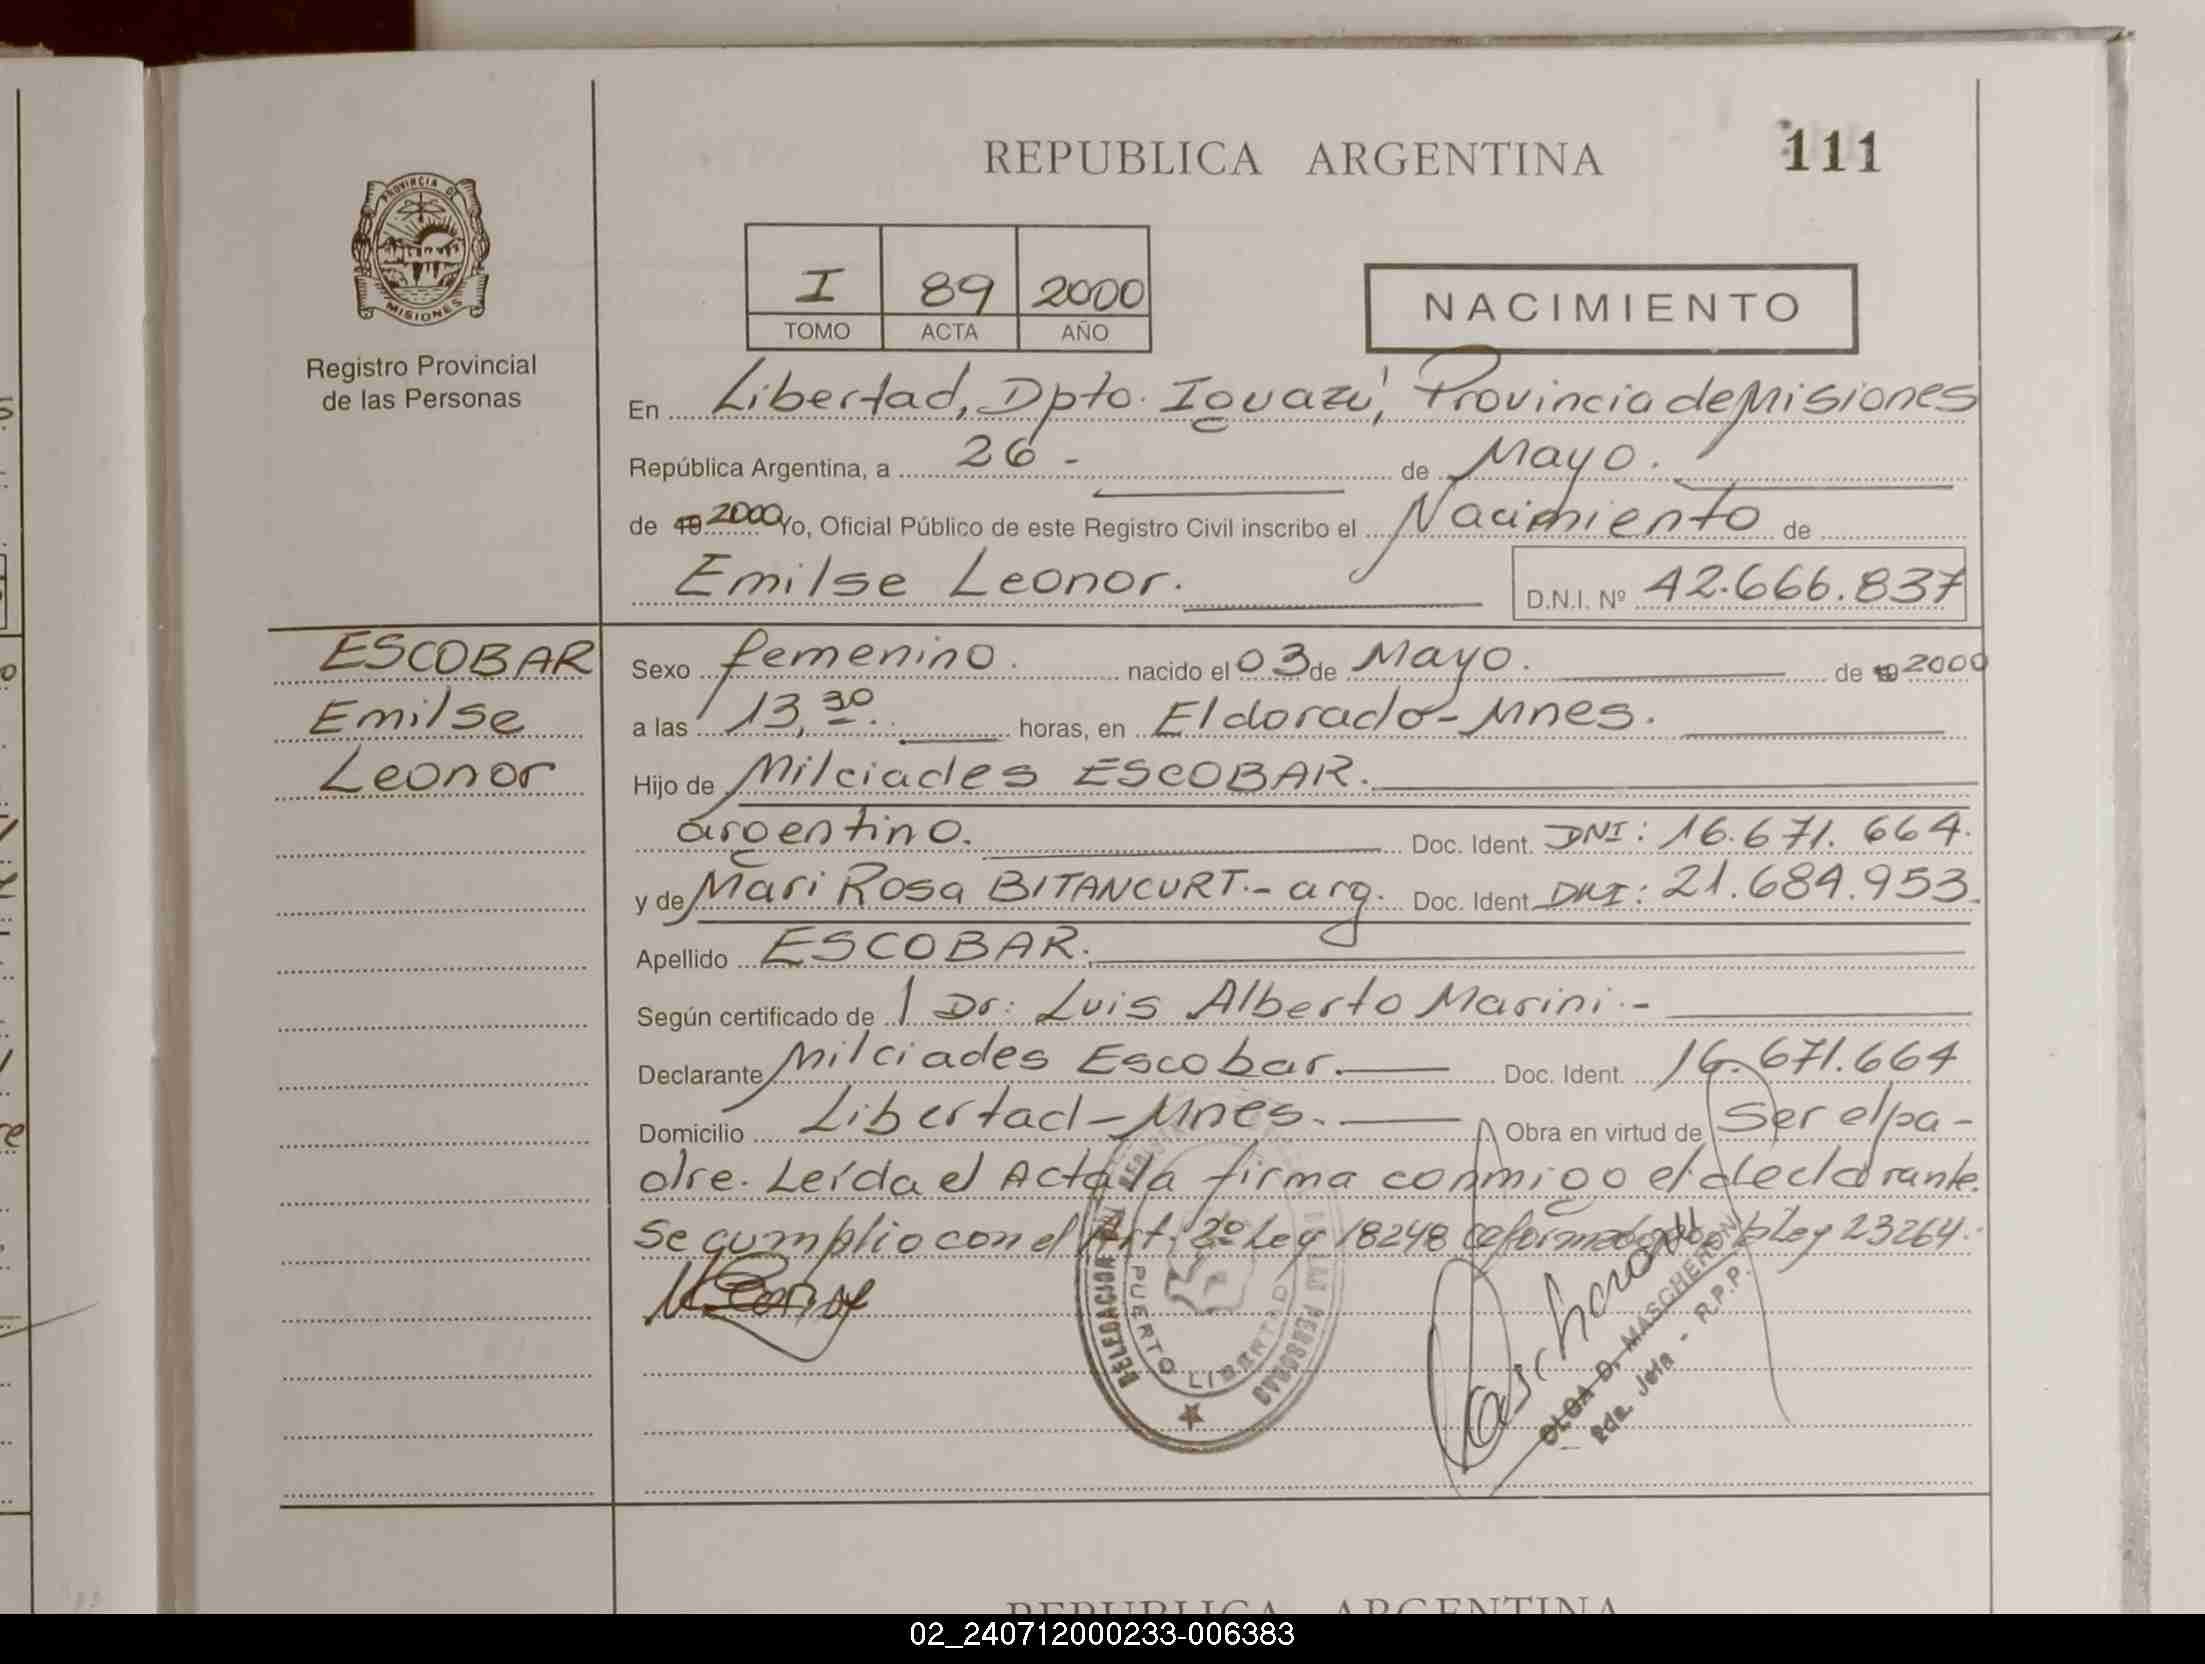 REPUBLICA ARGENTINA
111
PROVINCIA DE
MISIONES
Registro Provincial
de las Personas
I 89 2000
TOMO ACTA AÑO
NACIMIENTO
En Libertad, Dpto. Iguazú, Provincia de Misiones
República Argentina, a 26 - de Mayo.
de 19 2000 Yo, Oficial Público de este Registro Civil inscribo el Nacimiento de
Emilse Leonor. D.N.I. Nº 42.666.837
ESCOBAR
Emilse
Leonor
Sexo femenino. nacido el 03 de Mayo. de 19 2000
a las 13,30. horas, en Eldorado-Mnes.
Hijo de Milciades ESCOBAR.
argentino. Doc. Ident. DNI: 16.671.664.
y de Mari Rosa BITANCURT.- arg. Doc. Ident. DNI: 21.684.953.
Apellido ESCOBAR.
Según certificado de l Dr: Luis Alberto Marini.-
Declarante Milciades Escobar. Doc. Ident. 16.671.664
Domicilio Libertad-Mnes. Obra en virtud de Ser el pa-
dre. Leída el Acta la firma conmigo el declarante.
Se cumplio con el Art. 2º Ley 18248 reformado por Ley 23264.
DELEGACION
PERSONAS
PUERTO LIBERTAD
OLGA D. MASCHERONI
2da. Jefa - R.P.P.
REPUBLICA ARGENTINA
02_240712000233-006383